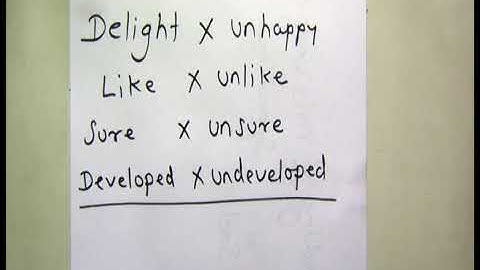 Delight x unhappy
Like x unlike
Sure x unsure
Developed x undeveloped